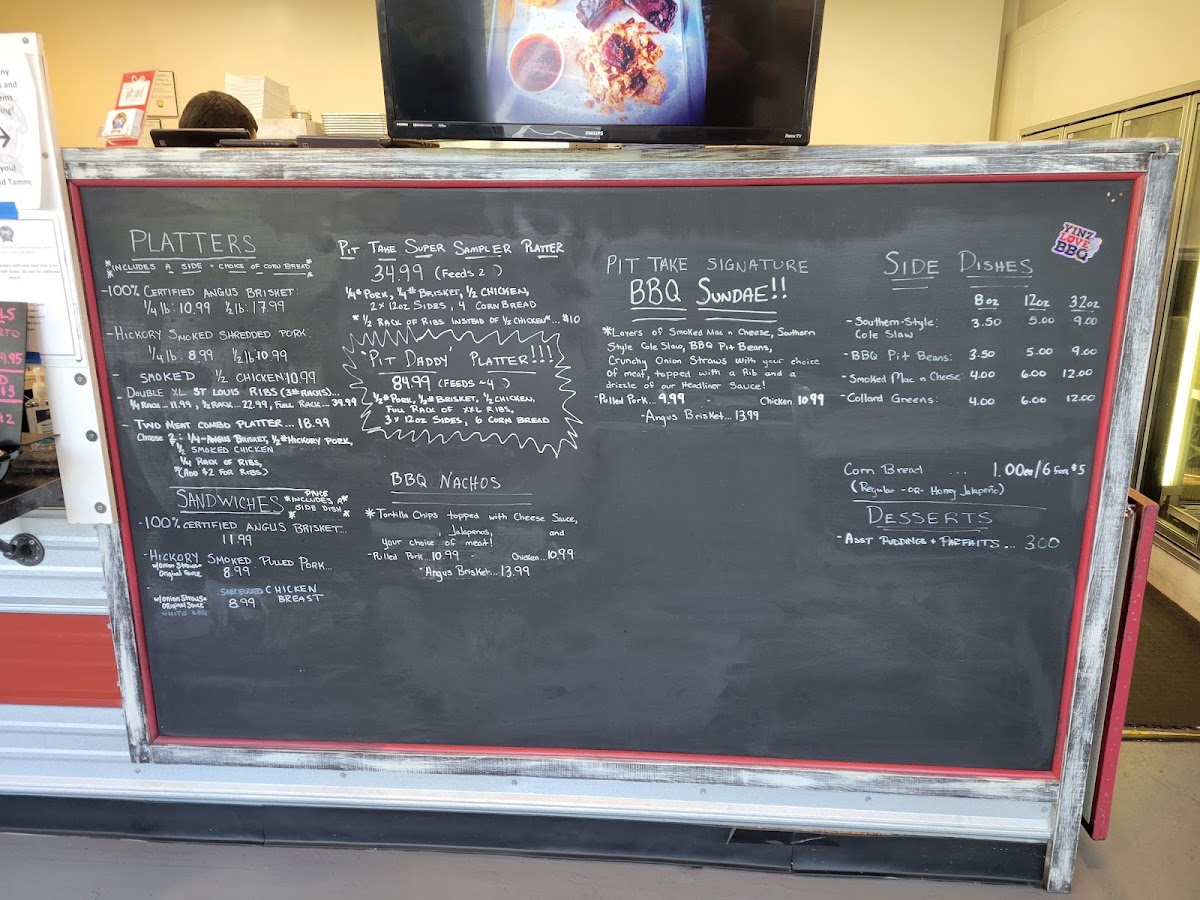 PLATTERS
*INCLUDES A SIDE + CHOICE OF CORN BREAD*
-100% CERTIFIED ANGUS BRISKET:
1/4 lb: 10.99 1/2 lb: 17.99
-HICKORY SMOKED SHREDDED PORK:
1/4 lb: 8.99 1/2 lb 10.99
- SMOKED 1/2 CHICKEN 10.99
- DOUBLE XL ST LOUIS RIBS (3# RACKS)...
1/4 RACK...11.99, 1/2 RACK...22.99, FULL RACK...39.99
- TWO MEAT COMBO PLATTER...18.99
CHOOSE 2: 1/4-ANGUS BRISKET, 1/2# HICKORY PORK,
1/2 SMOKED CHICKEN
1/4 RACK OF RIBS,
*(ADD $2 FOR RIBS)
SANDWICHES *PRICE INCLUDES A SIDE DISH*
-100% CERTIFIED ANGUS BRISKET...
11.99
-HICKORY SMOKED PULLED PORK...
w/Onion Straws+
Original Sauce 8.99
- SHREDDED CHICKEN BREAST
w/Onion Straws+
Original Sauce 8.99
WHITE BBQ
PIT TAKE SUPER SAMPLER PLATTER
34.99 (FEEDS 2)
1/4# PORK, 1/4# BRISKET, 1/2 CHICKEN,
2 x 12oz SIDES, 4 CORN BREAD
* 1/2 RACK OF RIBS INSTEAD OF 1/2 CHICKEN*...$10
*PIT DADDY PLATTER!!!
84.99 (FEEDS ~4)
1/2# PORK, 1/2# BRISKET, 1/2 CHICKEN,
FULL RACK OF XXL RIBS,
3 x 12oz SIDES, 6 CORN BREAD
BBQ NACHOS
*Tortilla Chips topped with Cheese Sauce,
, Jalapenos, and
your choice of meat!
-Pulled Pork...10.99 - Chicken...10.99
-Angus Brisket...13.99
PIT TAKE SIGNATURE
BBQ SUNDAE!!
*Layers of Smoked Mac n Cheese, Southern
Style Cole Slaw, BBQ Pit Beans,
Crunchy Onion Straws with your choice
of meat, topped with a Rib and a
drizzle of our Headliner Sauce!
-Pulled Pork - 9.99 - Chicken. 10.99
-Angus Brisket...13.99
SIDE DISHES
8oz 12oz 32oz
-Southern-Style: 3.50 5.00 9.00
Cole Slaw
-BBQ Pit Beans: 3.50 5.00 9.00
-Smoked Mac n Cheese: 4.00 6.00 12.00
-Collard Greens: 4.00 6.00 12.00
Corn Bread .... 1.00ea/6 for $5
(Regular -OR- Honey Jalapeño)
DESSERTS
-ASST PUDDINGS + PARFAITS... 3.00
YINZ
LOVE
BBQ
PHILIPS
Roku TV